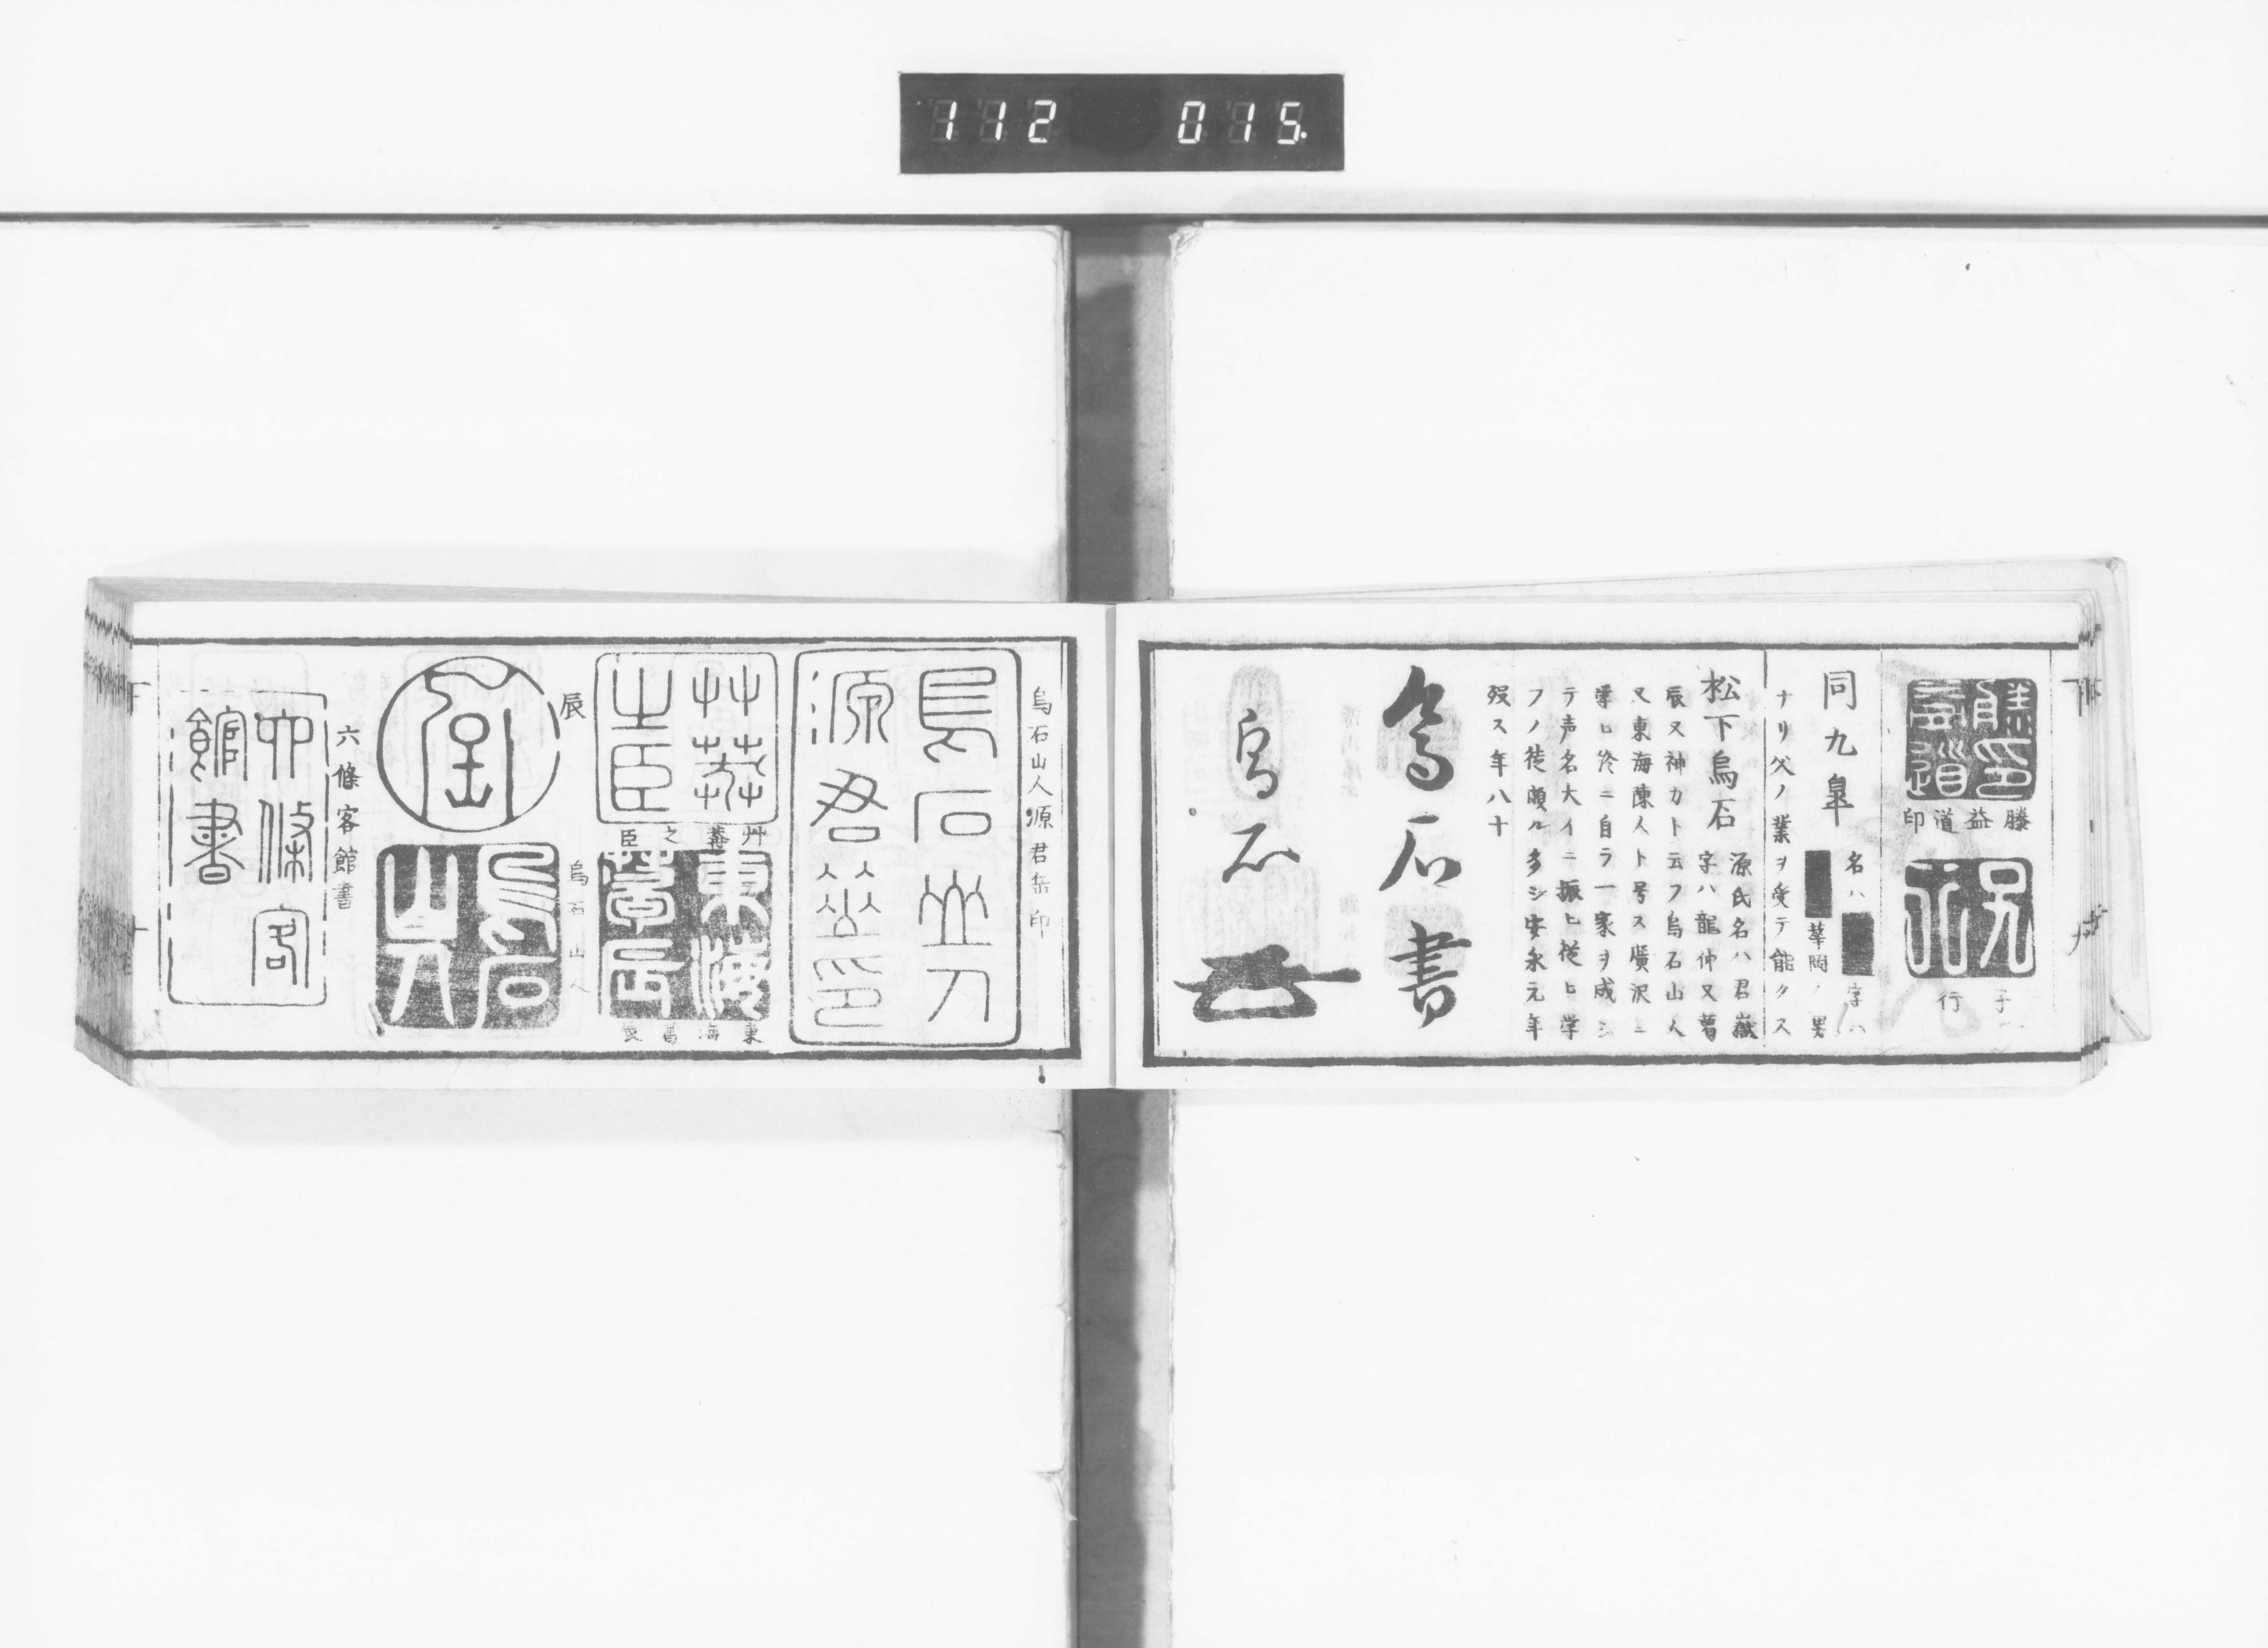 112 015.
滕益道印
子行
同九皐 名ハ■字ハ
■華岡ノ男
ナリ父ノ業ヲ受テ能クス
松下烏石 源氏名ハ君嶽
字ハ龍仲又曽
辰又神力ト云フ烏石山人
又東海陳人ト号ス廣沢ニ
学ヒ後ニ自ラ一家ヲ成シ
テ声名大イニ振ヒ従ヒ学
フノ徒頗ル多シ安永元年
歿ス年八十
烏石書
烏石
烏石山人源君岳印
艸莽之臣
東海葛辰
辰
烏石山人
六條客館書
六條客
館書